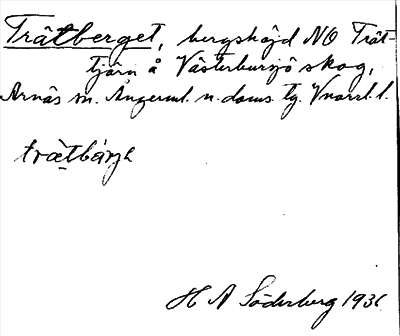 Trätberget, bergshöjd NO Trät-
tjärn å Västerbursjö skog,
Arnäs sn. Ångerml. n. doms. tg. Vnorrl. l.
trätbärjε
H A Söderberg 193